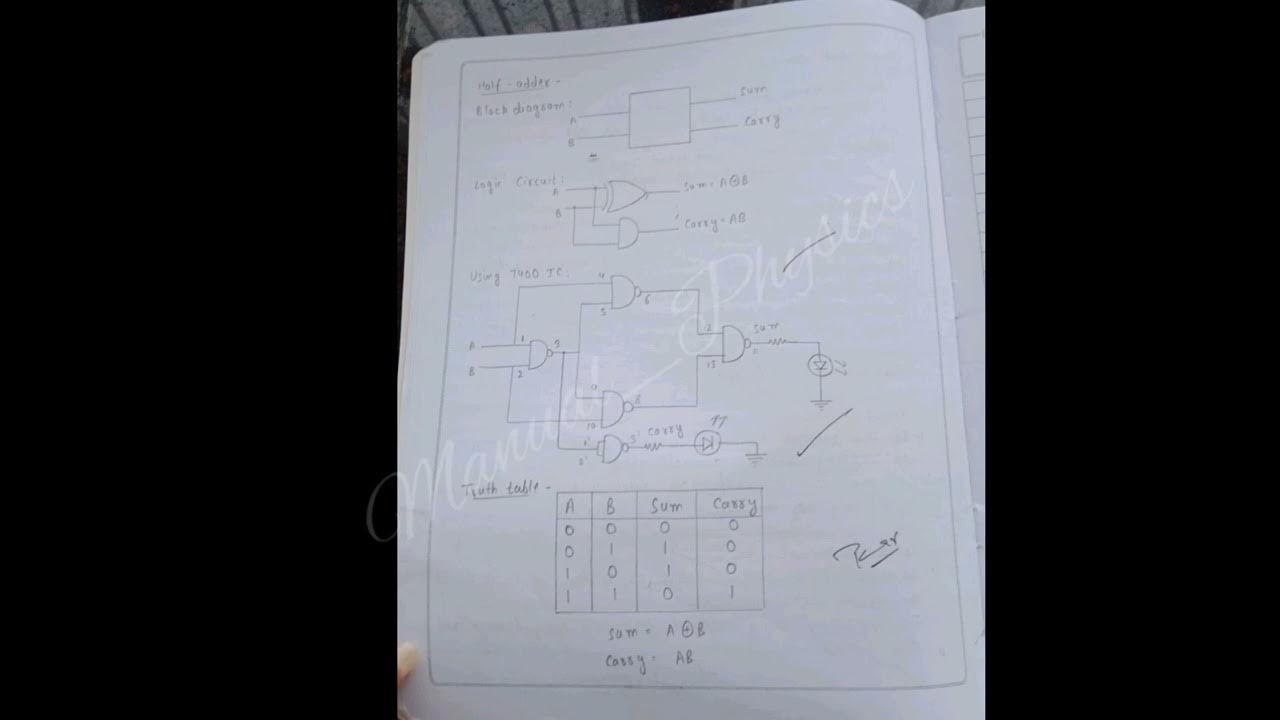 Half-adder-
Block diagram:
A
B
Sum
Carry
Logic Circuit:
A
B
Sum = A⊕B
Carry = AB
Using 7400 IC:
A
B
1
2
3
4
5
6
9
10
8
12
13
11
Sum
1'
3'
Carry
Truth table-
A B Sum Carry
0 0 0 0
0 1 1 0
1 0 1 0
1 1 0 1
Sum = A⊕B
Carry = AB
Manual_Physics